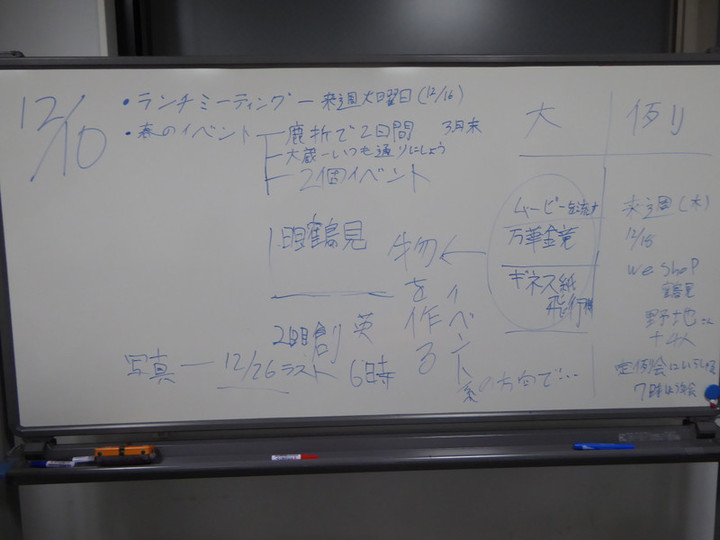 12/10
・ランチミーティング ー 来週火曜日 (12/16)
・春のイベント ー 鹿折で2日間 3月末
大蔵ーいつも通りにしよう
2個イベント
1日目鶴見
2日目創英
写真 ー 12/26ラスト 6時
物を作る
←イベント系の方向で…
大
ムービーを流す
万華鏡
ギネス紙飛行機
例り
来週(木)
12/18
we shop
鶴見
野地さん
定例会
7時は